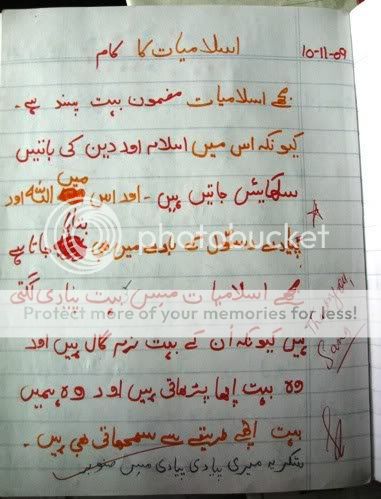 اسلامیات کا کام
10-11-09
مجھے اسلامیات مضمون بہت پسند ہے۔
کیونکہ اس میں اسلام اور دین کی باتیں
سکھائیں جاتیں ہیں۔ اور اس میں اللہ اور
پیارے رسولؐ کے بارے میں بھی بتایا جاتا ہے
مجھے اسلامیات کی میس بہت پیاری لگتی
ہیں کیونکہ اُن کے بہت نرم گال ہیں اور
وہ بہت اچھا پڑھاتی ہیں اور وہ ہمیں
بہت اچھے طریقے سے سمجھاتی بھی ہیں۔
شکریہ میری پیاری پیاری میس صنوبر
Thankyou,
photobucket
Protect more of your memories for less!